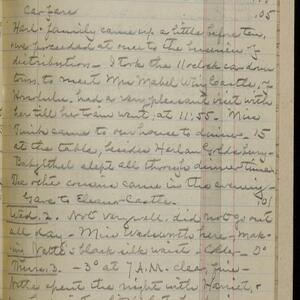 Car fare .05
Har. family came up a little before ten,
we proceeded at once to the business of
distribution. I took the 11 o'clock car down
town to meet Mrs Mabel Wing Castle, of
Honolulu, had a very pleasant visit with
her till her train went, at 11:55. Miss
came to our house to dinner - 15
at the table, besides Harlan Goldsbury
slept all through dinner time.
The other cousins came in the evening.
Gave to Eleanor Castle.
Wed. 2. Not very well, did not go out
all day - Miss Wadsworth here - mak-
ing Nette's black silk waist
Thurs. 3. -3° at 7 A.M. clear, fine -
spent the night with Harriet, &